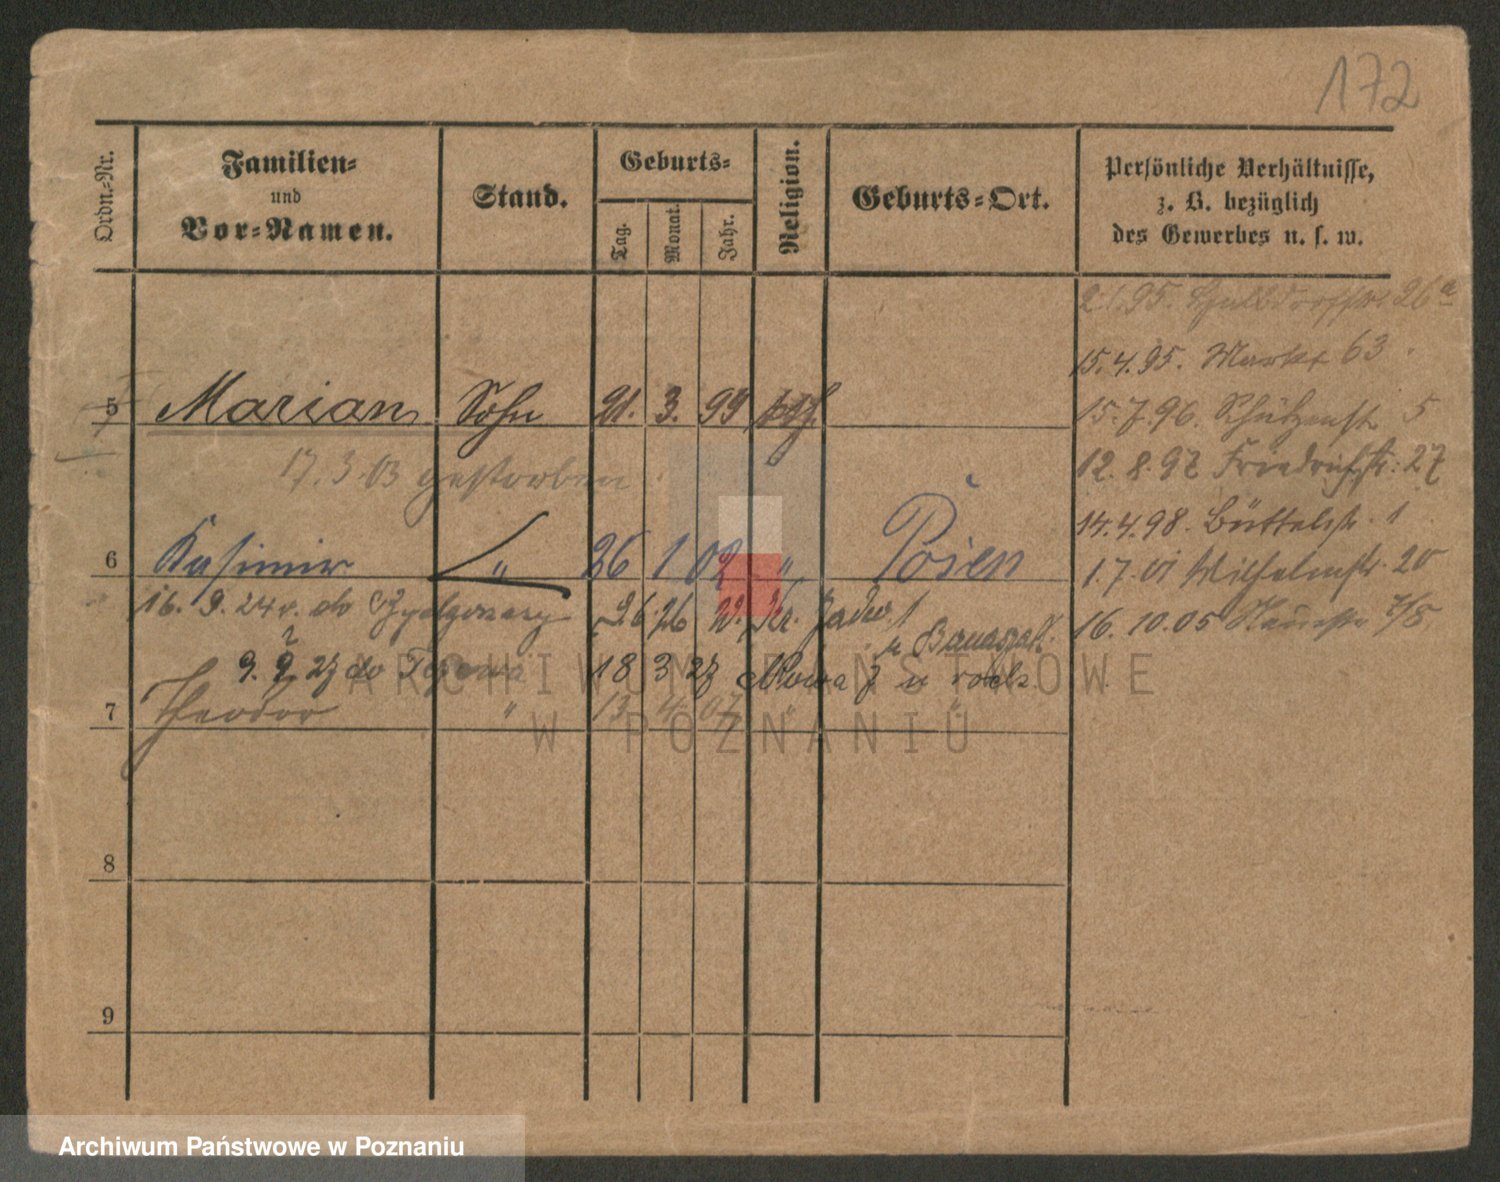 172
Ordn.-Nr.
Familien-
und
Vor-Namen.
Stand.
Geburts-
Tag.
Monat.
Jahr.
Religion.
Geburts-Ort.
Persönliche Verhältnisse,
z. B. bezüglich
des Gewerbes u. s. w.
95. 26a
15.4.95. Markt 63
5 Marian Sohn 21. 3. 93
15.7.96. Schützenstr 5
17.3.03 gestorben
12.8.97 Friedrichstr. 27
14.4.98. Büttelstr. 1
6 Kasimir " 26 1 02 " Posen
1.7.01 Wilhelmstr. 20
16. 9. 24 do
16.10.05 7/8
9. 27 do 18 3 27 Nowa 7
7 Theodor " 13 4 07 " "
8
9
ARCHIWUM PAŃSTWOWE
W POZNANIU
Archiwum Państwowe w Poznaniu